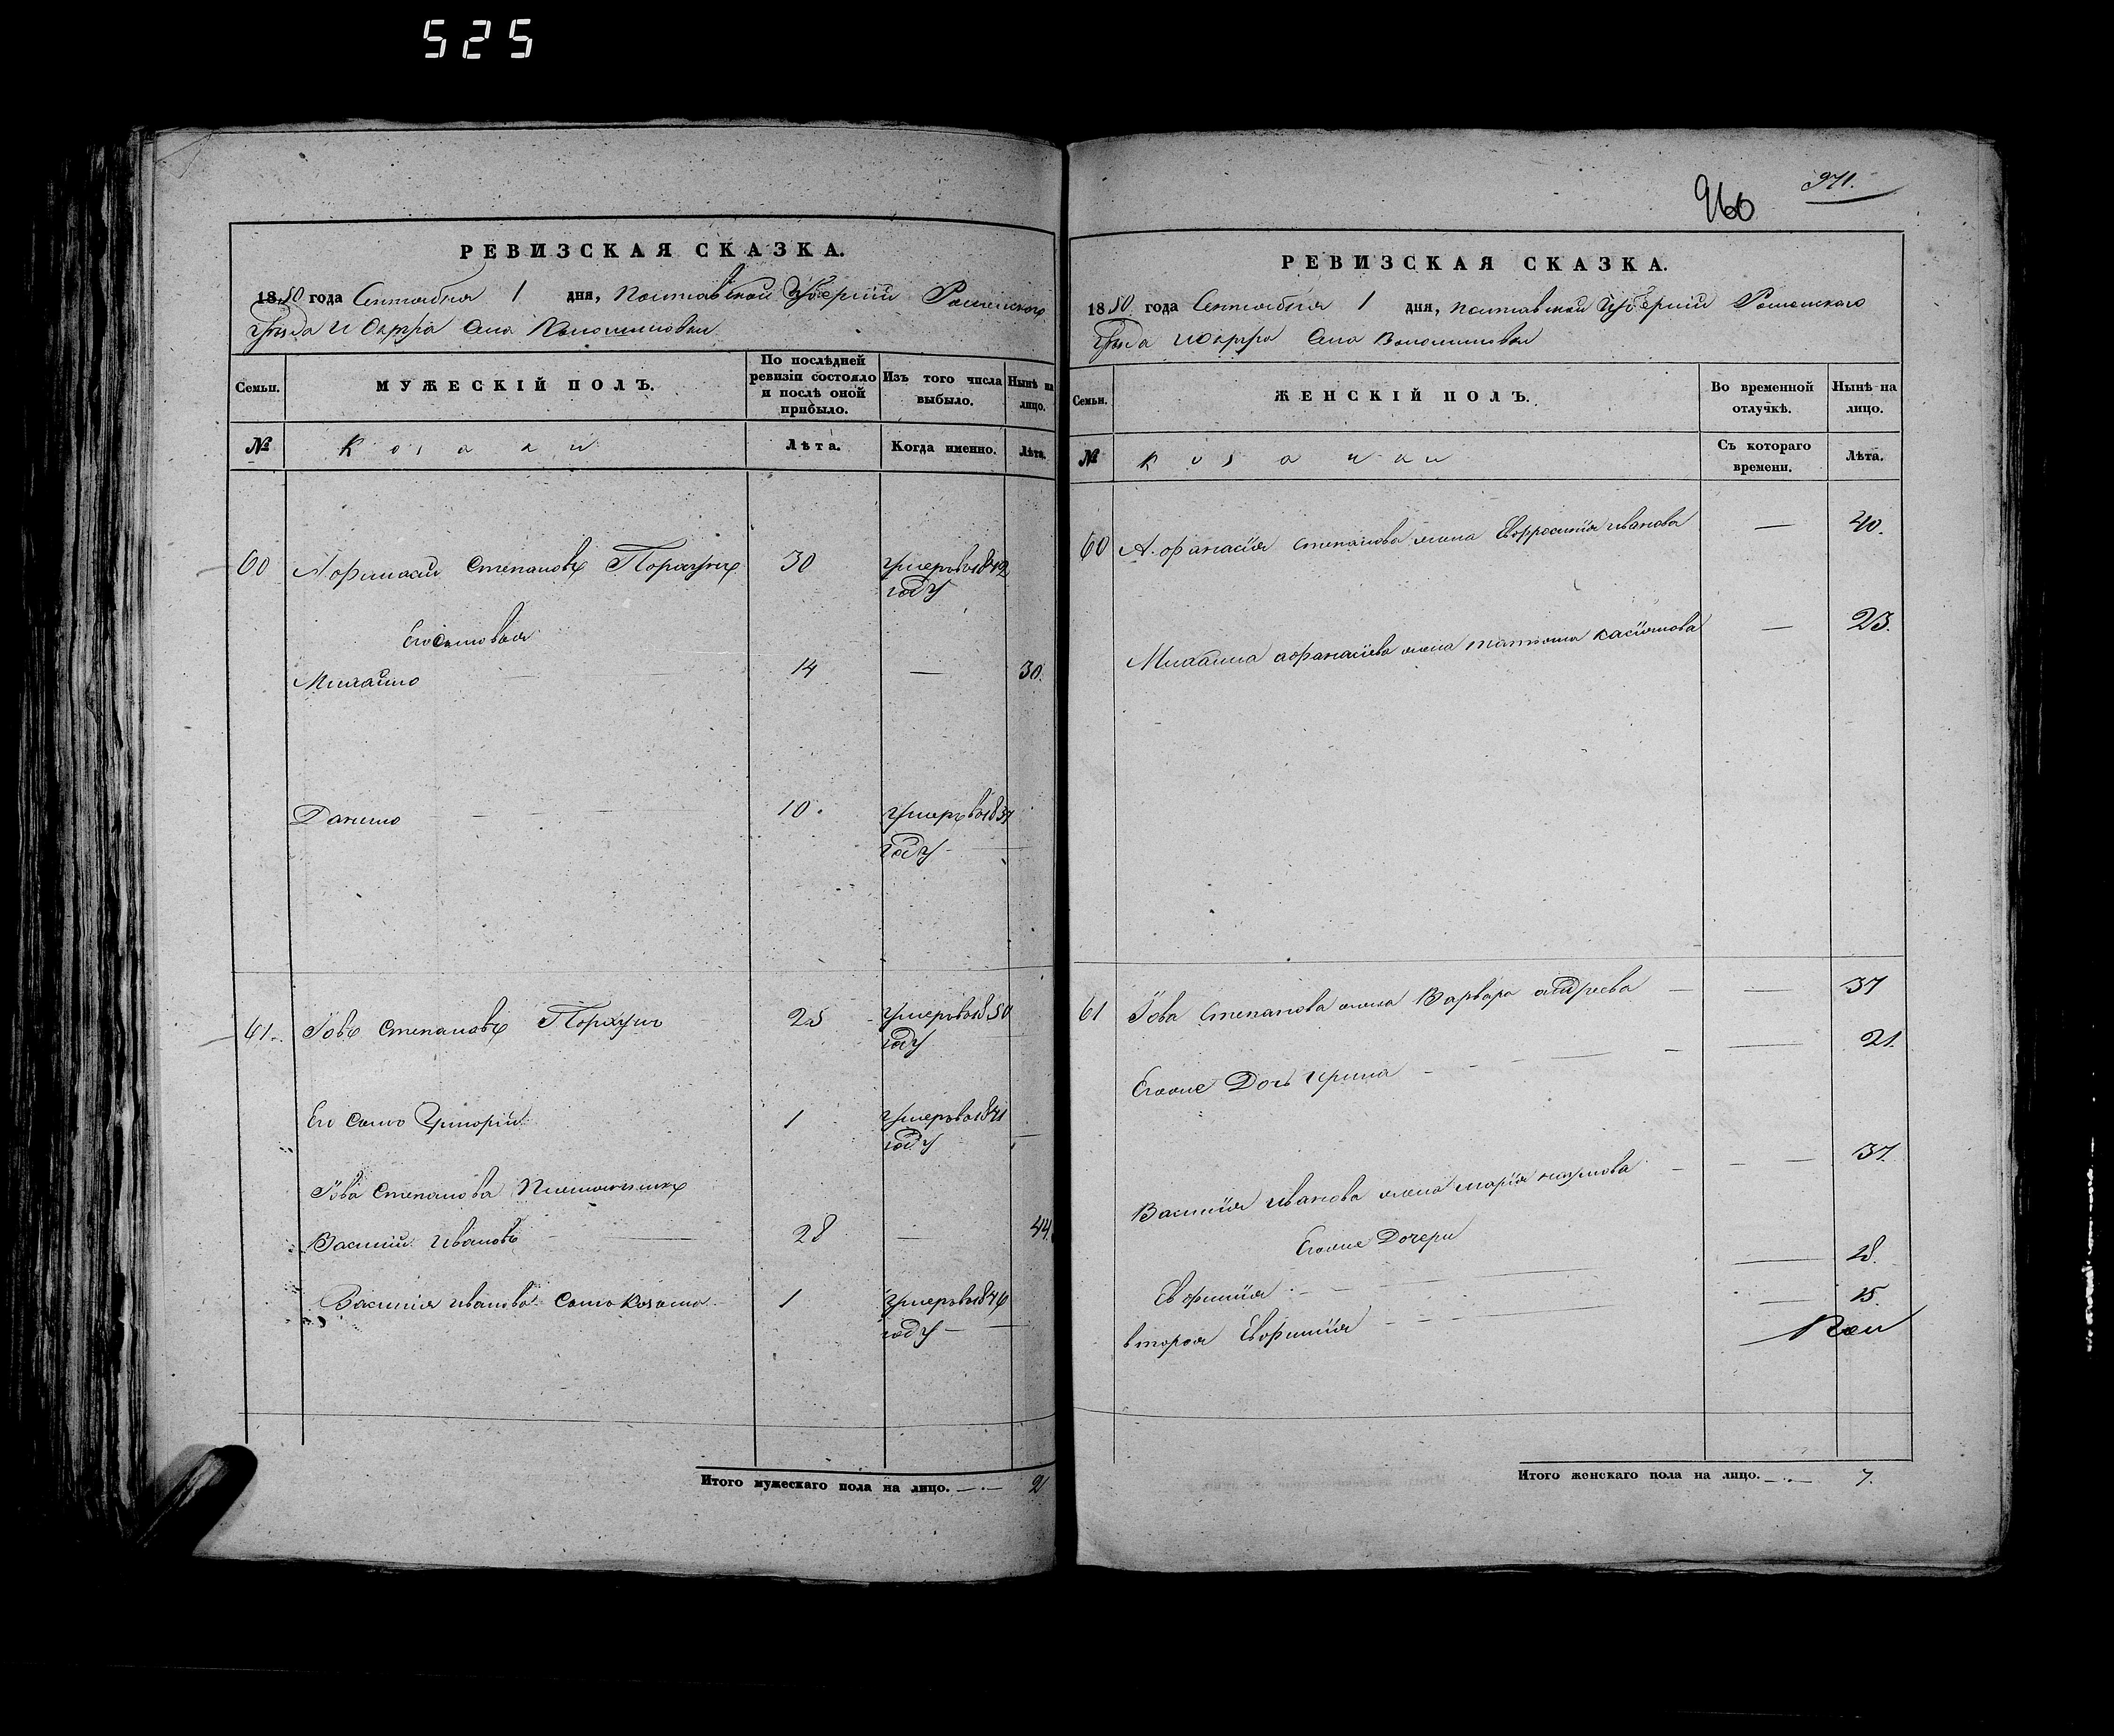 525
РЕВИЗСКАЯ СКАЗКА.
1850 года Сентября 1 дня, Полтавской Губерніи Роменского
уезда и округа Села
Семьи.
МУЖЕСКІЙ ПОЛЪ.
По послѣдней ревизіи состояло и послѣ оной прибыло.
Изъ того числа выбыло.
Нынѣ на лицо.
№
Козаки
Лѣта.
Когда именно.
Лѣта.
60 Афанасий Степановъ 30 умеръ в 1842
году
Его сыновья
Михайло 14 — 30.
Данило 10. умеръ в 1837
году
61. Іовъ Степановъ 25 умеръ в 1850
году
Его сынъ Григорій 1 умеръ в 1841
году
Іова Степанова племянникъ
Василий Ивановъ 28 — 44
Василия Иванова сынъ Козьма 1 умеръ в 1846
году
Итого мужескаго пола на лицо. 2
960
971.
РЕВИЗСКАЯ СКАЗКА.
1850 года Сентября 1 дня, Полтавской Губерніи Роменского
уезда и округа Села
Семьи.
ЖЕНСКІЙ ПОЛЪ.
Во временной отлучкѣ.
Нынѣ на лицо.
№
Козачки
Съ котораго времени.
Лѣта.
60 Афанасия Степанова жена Евфросинія Иванова — 40.
Михайла Афанасіева жена Татьяна Касіянова — 23.
61 Іова Степанова жена Варвара Андреева — 37
Егоже Дочь Ирина — 21.
Василия Иванова жена Марія Наумова — 37.
Егоже Дочери
Евфимия — 18.
вторая Евфимия — 15.
Итого женскаго пола на лицо. 7.